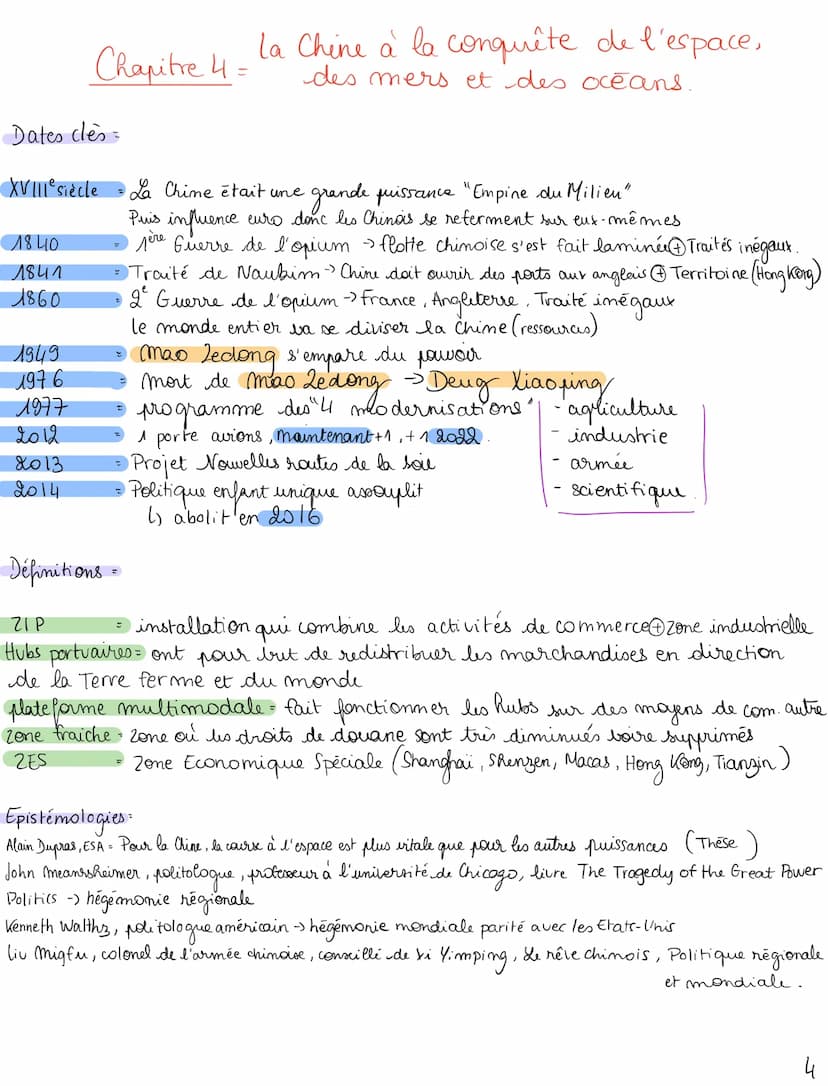 Chapitre 4 = La Chine à la conquête de l'espace,
des mers et des océans.
Dates clès =
XVIIIe siècle = La Chine était une grande puissance "Empine du Milieu"
Puis influence euro donc les Chinois se referment sur eux-mêmes
1840 = 1ère Guerre de l'opium -> flotte chinoise s'est fait laminée ⊕ Traités inégaux.
1841 = Traité de Naukim -> Chine doit ouvrir des ports aux anglais ⊕ Territoire (Hong Kong)
1860 = 2e Guerre de l'opium -> France, Angleterre, Traité inégaux
le monde entier va se diviser la Chine (ressources)
1949 = Mao Zedong s'empare du pouvoir
1976 = mort de Mao Zedong -> Deng Xiaoping
1977 = programme des "4 modernisations" - agriculture
2012 = 1 porte avions, maintenant +1, +1 2022. - industrie
2013 = Projet Nouvelles routes de la soie - armée
2014 = Politique enfant unique assouplit - scientifique
↳ abolit en 2016
Définitions =
ZIP = installation qui combine les activités de commerce ⊕ zone industrielle
Hubs portuaires = ont pour but de redistribuer les marchandises en direction
de la Terre ferme et du monde
plateforme multimodale = fait fonctionner les hubs sur des moyens de com. autre
zone fraiche = zone où les droits de douane sont très diminués voire supprimés
ZES = Zone Economique Spéciale (Shanghaï, Shenzen, Macas, Hong Kong, Tianzin)
Epistémologies =
Alain Dupras, ESA = Pour la Chine, la course à l'espace est plus vitale que pour les autres puissances (Thèse)
John Meanrsheimer, politologue, professeur à l'université de Chicago, livre The Tragedy of the Great Power
Politics -> hégémonie régionale
Kenneth Walthz, politologue américain -> hégémonie mondiale parité avec les Etats-Unis
Liu Migfu, colonel de l'armée chinoise, conseillé de Xi Yimping, Le rêve chinois, Politique régionale
et mondiale.
4